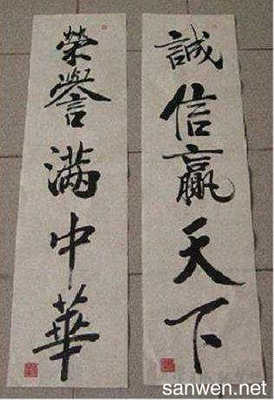 誠信贏天下
榮譽满中華
sanwen.net